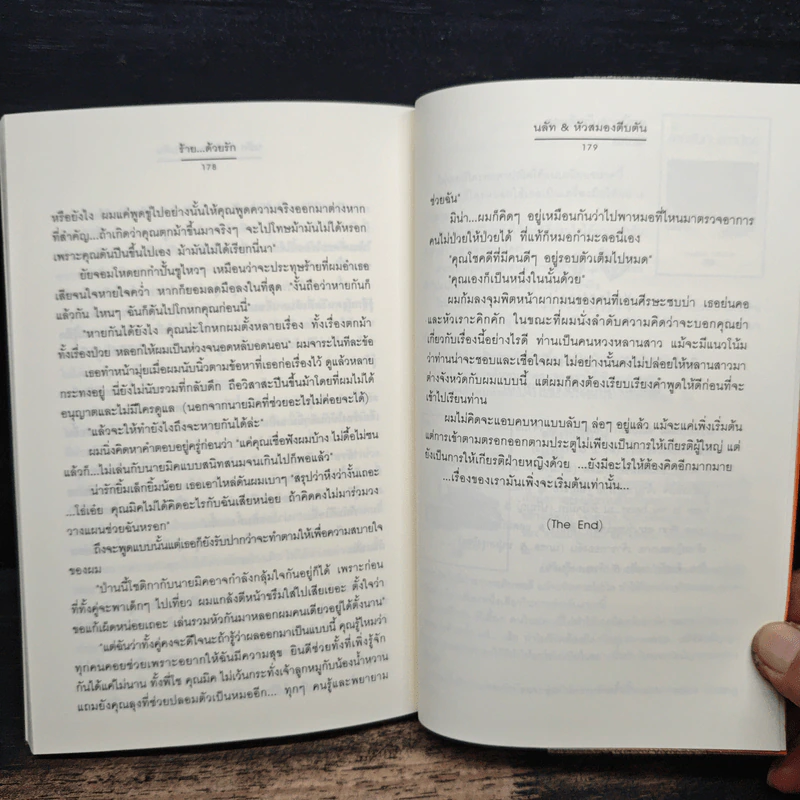 ร้าย...ด้วยรัก
178
หรือยังไง ผมแค่พูดขู่ไปอย่างนั้นให้คุณพูดความจริงออกมาต่างหาก
ที่สำคัญ...ถ้าเกิดว่าคุณตกม้าขึ้นมาจริงๆ จะไปโทษม้ามันไม่ได้หรอก
เพราะคุณดันปีนขึ้นไปเอง ม้ามันไม่ได้เรียกนี่นา"
ยัยจอมโหดยกกำปั้นชูไหวๆ เหมือนว่าจะประทุษร้ายที่ผมอำเธอ
เสียจนใจหายใจคว่ำ หากก็ยอมลดมือลงในที่สุด "งั้นถือว่าหายกันก็
แล้วกัน ไหนๆ ฉันก็ดันไปโกหกคุณก่อนนี่"
"หายกันได้ยังไง คุณน่ะโกหกผมตั้งหลายเรื่อง ทั้งเรื่องตกม้า
ทั้งเรื่องป่วย หลอกให้ผมเป็นห่วงจนอดหลับอดนอน" ผมจาระไนทีละข้อ
เธอทำหน้ามุ่ยเมื่อผมนับนิ้วตามข้อหาที่เธอก่อเรื่องไว้ ดูแล้วหลาย
กระทงอยู่ นี่ยังไม่นับรวมที่กลับดึก ถือวิสาสะปีนขึ้นม้าโดยที่ผมไม่ได้
อนุญาตและไม่มีใครดูแล (นอกจากนายมิคที่ช่วยอะไรไม่ค่อยจะได้)
"แล้วจะให้ทำยังไงถึงจะหายกันได้ล่ะ"
ผมนิ่งคิดหาคำตอบอยู่ครู่ก่อนว่า "แค่คุณเชื่อฟังผมบ้าง ไม่ดื้อไม่ซน
แล้วก็...ไม่เล่นกับนายมิคแบบสนิทสนมจนเกินไปก็พอแล้ว"
น่ารักยิ้มเล็กยิ้มน้อย เธอเอาไหล่ดันผมเบาๆ "สรุปว่าหึงว่างั้นเถอะ
...โธ่เอ๋ย คุณมิคไม่ได้คิดอะไรกับฉันเสียหน่อย ถ้าคิดคงไม่มาร่วมวง
วางแผนช่วยฉันหรอก"
ถึงจะพูดแบบนั้นแต่เธอก็ยังรับปากว่าจะทำตามให้เพื่อความสบายใจ
ของผม
"ป่านนี้โชติกากับนายมิคอาจกำลังกลุ้มใจกันอยู่ก็ได้ เพราะก่อน
ที่ทั้งคู่จะพาเด็กๆ ไปเที่ยว ผมแกล้งตีหน้าขรึมใส่ไปเสียเยอะ ตั้งใจว่า
ขอแก้เผ็ดหน่อยเถอะ เล่นรวมหัวกันมาหลอกผมคนเดียวอยู่ได้ตั้งนาน"
"แต่ฉันว่าทั้งคู่คงจะดีใจนะถ้ารู้ว่าผลออกมาเป็นแบบนี้ คุณรู้ไหมว่า
ทุกคนคอยช่วยเพราะอยากให้ฉันมีความสุข ยินดีช่วยทั้งที่เพิ่งรู้จัก
กันได้แค่ไม่นาน ทั้งพี่โช คุณมิค ไม่เว้นกระทั่งเจ้าลูกหมูกับน้องน้ำหวาน
แถมยังคุณลุงที่ช่วยปลอมตัวเป็นหมออีก... ทุกๆ คนรู้และพยายาม
นลัท & หัวสมองตีบตัน
179
ช่วยฉัน"
มิน่า...ผมก็คิดๆ อยู่เหมือนกันว่าไปพาหมอที่ไหนมาตรวจอาการ
คนไม่ป่วยให้ป่วยได้ ที่แท้ก็หมอกำมะลอนี่เอง
"คุณโชคดีที่มีคนดีๆ อยู่รอบตัวเต็มไปหมด"
"คุณเองก็เป็นหนึ่งในนั้นด้วย"
ผมก้มลงจุมพิตหน้าผากมนของคนที่เอนศีรษะซบบ่า เธอย่นคอ
และหัวเราะคิกคัก ในขณะที่ผมนั่งลำดับความคิดว่าจะบอกคุณย่า
เกี่ยวกับเรื่องนี้อย่างไรดี ท่านเป็นคนหวงหลานสาว แม้จะมีแนวโน้ม
ว่าท่านน่าจะชอบและเชื่อใจผม ไม่อย่างนั้นคงไม่ปล่อยให้หลานสาวมา
ต่างจังหวัดกับผมแบบนี้ แต่ผมก็คงต้องเรียบเรียงคำพูดให้ดีก่อนที่จะ
เข้าไปเรียนท่าน
ผมไม่คิดจะแอบคบหาแบบลับๆ ล่อๆ อยู่แล้ว แม้จะแค่เพิ่งเริ่มต้น
แต่การเข้าตามตรอกออกตามประตูไม่เพียงเป็นการให้เกียรติผู้ใหญ่ แต่
ยังเป็นการให้เกียรติฝ่ายหญิงด้วย ...ยังมีอะไรให้ต้องคิดอีกมากมาย
...เรื่องของเรามันเพิ่งจะเริ่มต้นเท่านั้น...
(The End)